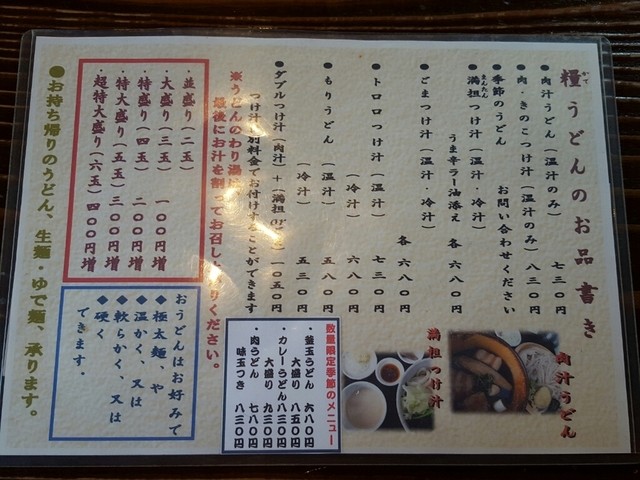 糧うどんのお品書き
かて
●肉汁うどん（温汁のみ） 七三〇円
●肉・きのこつけ汁（温汁のみ） 八三〇円
●季節のうどん お問い合わせください
●満担つけ汁（温汁・冷汁）
まんたん
うま辛ラー油添え 各 六八〇円
●ごまつけ汁（温汁・冷汁）
各 六八〇円
●トロロつけ汁（温汁） 七三〇円
（冷汁） 六八〇円
●もりうどん（温汁） 五八〇円
（冷汁） 五三〇円
●ダブルつけ汁（肉汁）＋（満担 一〇五〇円
つけ汁 別料金でお付けすることができます
※うどんのわり湯
最後にお汁を割ってお召し りください。
・並盛り（二玉）
・大盛り（三玉） 一〇〇円増
・特盛り（四玉） 二〇〇円増
・特大盛り（五玉） 三〇〇円増
・超特大盛り（六玉） 四〇〇円増
●お持ち帰りのうどん、生麺・ゆで麺、承ります。
肉汁うどん
満担つけ汁
数量限定季節のメニュー
・釜玉うどん 六八〇円
大盛り 八五〇円
・カレーうどん 八三〇円
大盛り 九三〇円
・肉うどん 七八〇円
味玉つき 八三〇円
おうどんはお好みで
◆極太麺、や
◆温かく、又は
◆軟らかく、又は
◆硬く
できます。